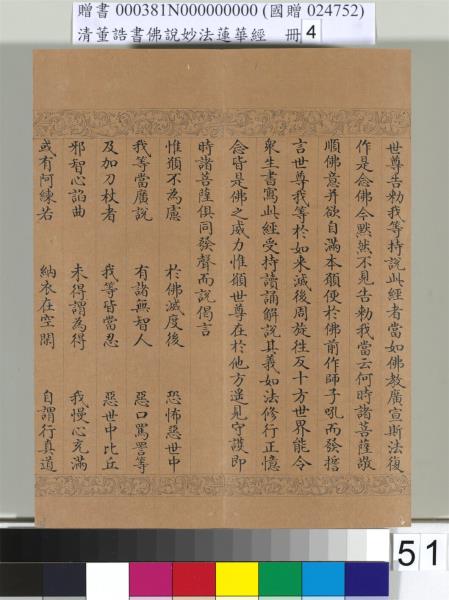 贈書 000381N000000000 (國贈 024752)
清董誥書佛說妙法蓮華經 冊 4
世尊告勑我等持說此經者當如佛教廣宣斯法復
作是念佛今默然不見告勑我當云何時諸菩薩敬
順佛意并欲自滿本願便於佛前作師子吼而發誓
言世尊我等於如來滅後周旋徃反十方世界能令
衆生書寫此經受持讀誦解說其義如法修行正憶
念皆是佛之威力惟願世尊在於他方遥見守護即
時諸菩薩俱同發聲而說偈言
惟願不為慮 於佛滅度後 恐怖惡世中
我等當廣說 有諸無智人 惡口罵詈等
及加刀杖者 我等皆當忍 惡世中比丘
邪智心諂曲 未得謂為得 我慢心充滿
或有阿練若 納衣在空閑 自謂行真道
51